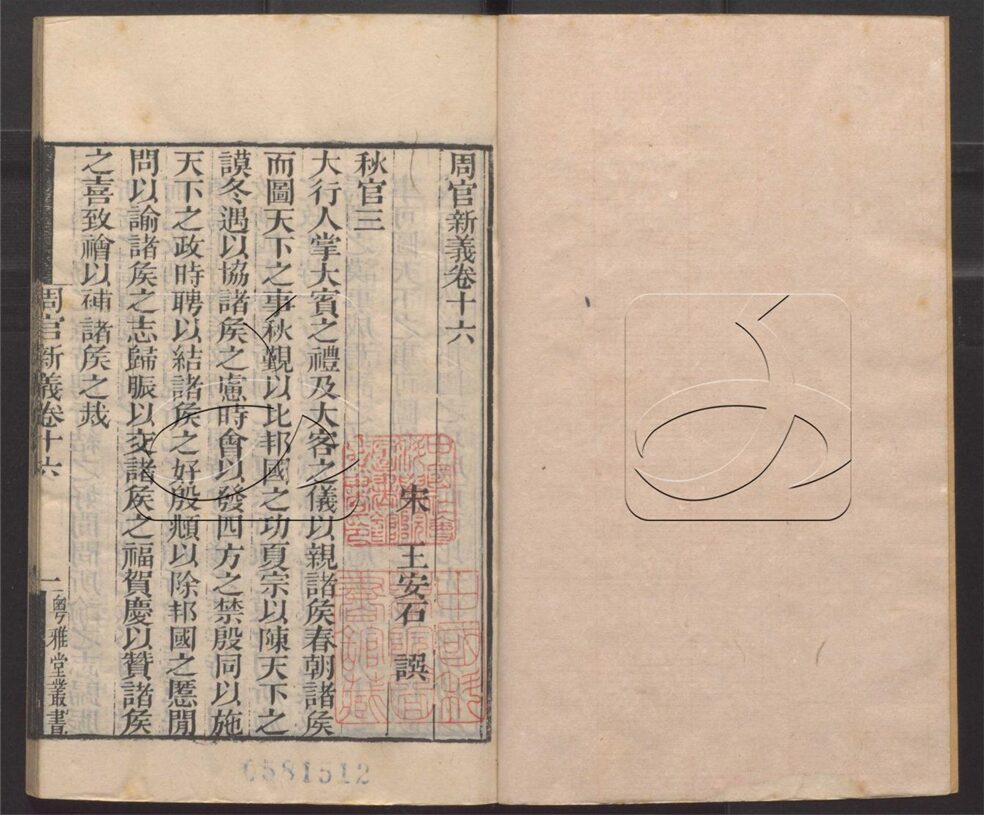 周官新義卷十六
宋 王安石 譔
秋官三
大行人掌大賓之禮及大客之儀以親諸矦春朝諸矦
而圖天下之事秋覲以比邦國之功夏宗以陳天下之
謨冬遇以協諸矦之慮時會以發四方之禁殷同以施
天下之政時聘以結諸矦之好殷覜以除邦國之慝閒
問以諭諸矦之志歸脤以交諸矦之福賀慶以贊諸矦
之喜致禬以補諸矦之烖
周官新義卷十六
一
粵雅堂叢書
0581512